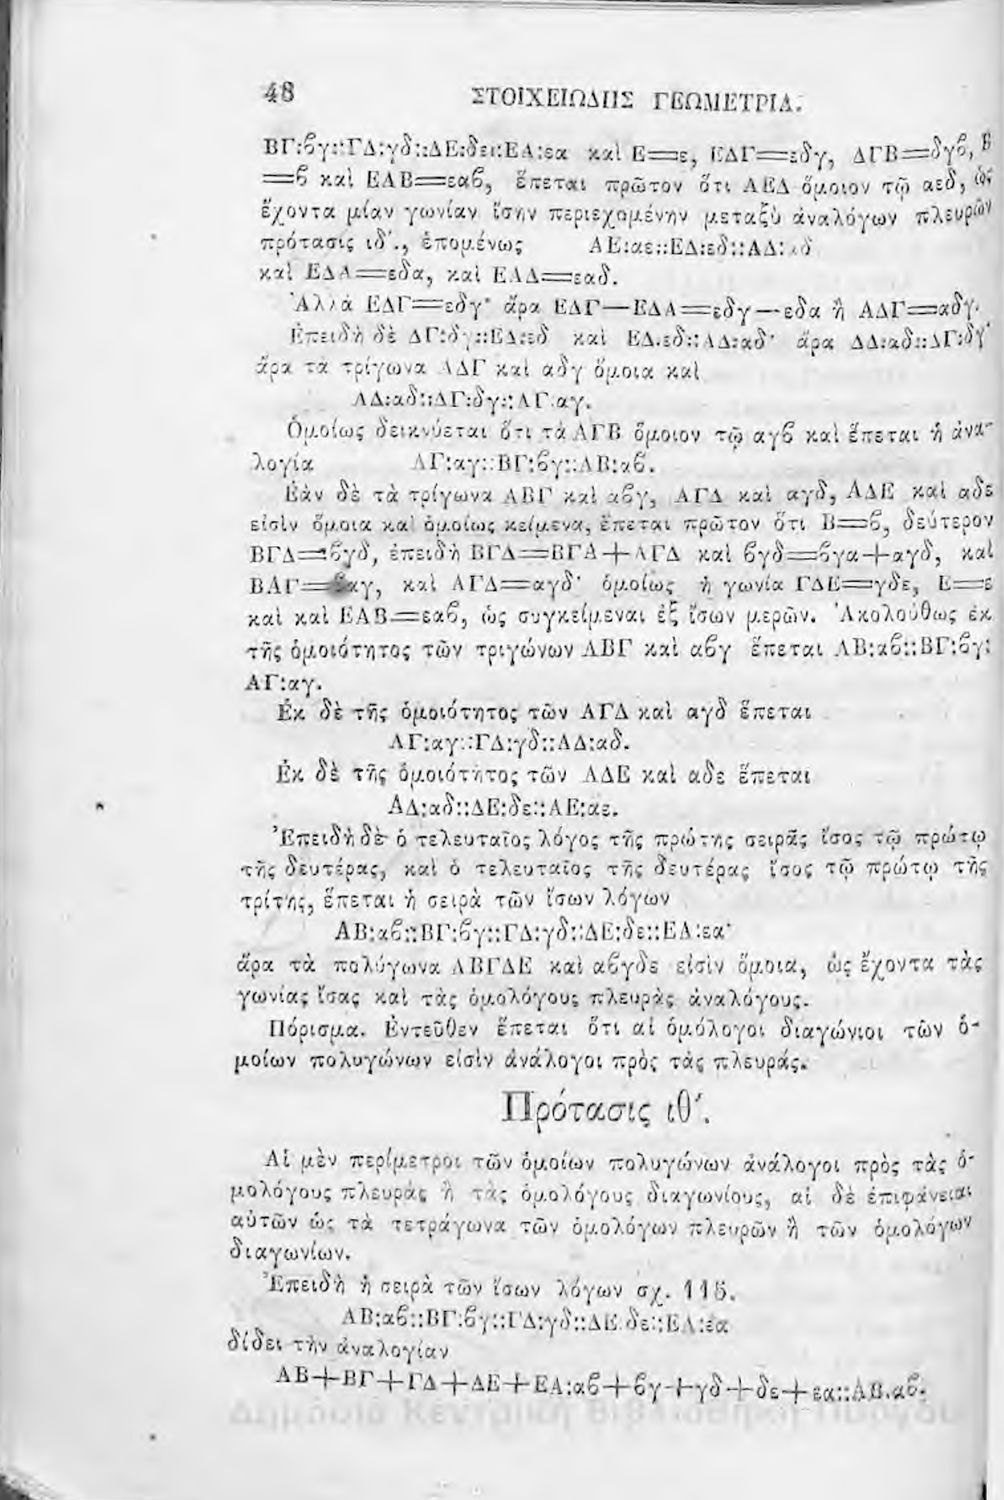 48 ΣΤΟΙΧΕΙΩΔΗΣ ΓΕΩΜΕΤΡΙΑ.
ΒΓ:ϐγ::ΓΔ:γδ::ΔΕ:δε::ΕΑ:εα καὶ Ε=ε, ΕΔΓ=εδγ, ΔΓΒ=δγϐ, Β
=ϐ καὶ ΕΑΒ=εαϐ, ἕπεται πρῶτον ὅτι ΑΕΔ ὅμοιον τῷ αεδ, ὡς
ἔχοντα μίαν γωνίαν ἴσην περιεχομένην μεταξὺ ἀναλόγων πλευρῶν
πρότασις ιδ΄., ἑπομένως ΑΕ:αε::ΕΔ:εδ::ΑΔ:αδ
καὶ ΕΔΑ=εδα, καὶ ΕΑΔ=εαδ.
Ἀλλὰ ΕΔΓ=εδγ· ἄρα ΕΔΓ—ΕΔΑ=εδγ—εδα ἢ ΑΔΓ=αδγ.
Ἐπειδὴ δὲ ΔΓ:δγ::ΕΔ:εδ καὶ ΕΔ.εδ::ΑΔ:αδ· ἄρα ΔΔ:αδ::ΔΓ:δγ
ἄρα τὰ τρίγωνα ΑΔΓ καὶ αδγ ὅμοια καὶ
ΑΔ:αδ::ΔΓ:δγ::ΑΓ.αγ.
Ὁμοίως δεικνύεται ὅτι τὰ ΑΓΒ ὅμοιον τῷ αγϐ καὶ ἕπεται ἡ ἀνα-
λογία ΑΓ:αγ::ΒΓ:ϐγ::ΑΒ:αϐ.
Ἐὰν δὲ τὰ τρίγωνα ΑΒΓ καὶ αϐγ, ΑΓΔ καὶ αγδ, ΑΔΕ καὶ αδε
εἰσὶν ὅμοια καὶ ὁμοίως κείμενα, ἕπεται πρῶτον ὅτι Β=ϐ, δεύτερον
ΒΓΔ=ϐγδ, ἐπειδὴ ΒΓΔ=ΒΓΑ+ΑΓΔ καὶ ϐγδ=ϐγα+αγδ, καὶ
ΒΑΓ=ϐαγ, καὶ ΑΓΔ=αγδ· ὁμοίως ἡ γωνία ΓΔΕ=γδε, Ε=ε
καὶ καὶ ΕΑΒ=εαϐ, ὡς συγκείμεναι ἐξ ἴσων μερῶν. Ἀκολούθως ἐκ
τῆς ὁμοιότητος τῶν τριγώνων ΑΒΓ καὶ αϐγ ἕπεται ΑΒ:αϐ::ΒΓ:ϐγ:
ΑΓ:αγ.
Ἐκ δὲ τῆς ὁμοιότητος τῶν ΑΓΔ καὶ αγδ ἕπεται
ΑΓ:αγ::ΓΔ:γδ::ΑΔ:αδ.
Ἐκ δὲ τῆς ὁμοιότητος τῶν ΑΔΕ καὶ αδε ἕπεται
ΑΔ:αδ::ΔΕ:δε::ΑΕ:αε.
Ἐπειδὴ δὲ ὁ τελευταῖος λόγος τῆς πρώτης σειρᾶς ἴσος τῷ πρώτῳ
τῆς δευτέρας, καὶ ὁ τελευταῖος τῆς δευτέρας ἴσος τῷ πρώτῳ τῆς
τρίτης, ἕπεται ἡ σειρὰ τῶν ἴσων λόγων
ΑΒ:αϐ::ΒΓ:ϐγ::ΓΔ:γδ::ΔΕ:δε::ΕΑ:εα·
ἄρα τὰ πολύγωνα ΑΒΓΔΕ καὶ αϐγδε εἰσὶν ὅμοια, ὡς ἔχοντα τὰς
γωνίας ἴσας καὶ τὰς ὁμολόγους πλευρὰς ἀναλόγους.
Πόρισμα. Ἐντεῦθεν ἕπεται ὅτι αἱ ὁμόλογοι διαγώνιοι τῶν ὁ-
μοίων πολυγώνων εἰσὶν ἀνάλογοι πρὸς τὰς πλευράς.
Πρότασις ιθ΄.
Αἱ μὲν περίμετροι τῶν ὁμοίων πολυγώνων ἀνάλογοι πρὸς τὰς ὁ-
μολόγους πλευρὰς ἢ τὰς ὁμολόγους διαγωνίους, αἱ δὲ ἐπιφάνειαι
αὐτῶν ὡς τὰ τετράγωνα τῶν ὁμολόγων πλευρῶν ἢ τῶν ὁμολόγων
διαγωνίων.
Ἐπειδὴ ἡ σειρὰ τῶν ἴσων λόγων σχ. 115.
ΑΒ:αϐ::ΒΓ:ϐγ::ΓΔ:γδ::ΔΕ.δε::ΕΑ:εα
δίδει τὴν ἀναλογίαν
ΑΒ+ΒΓ+ΓΔ+ΔΕ+ΕΑ:αϐ+ϐγ+γδ+δε+εα::ΑΒ.αϐ.
Δημόσια Κεντρική Βιβλιοθήκη Πύργου